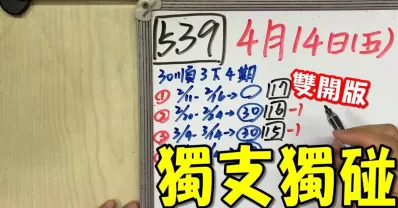 539 4月14日(五)
30順3下4期
雙開版
① 2/11-2/16→ 17
② 2/20-2/24→30 16-1
③ 3/4-3/4→30 15-1
獨支獨碰